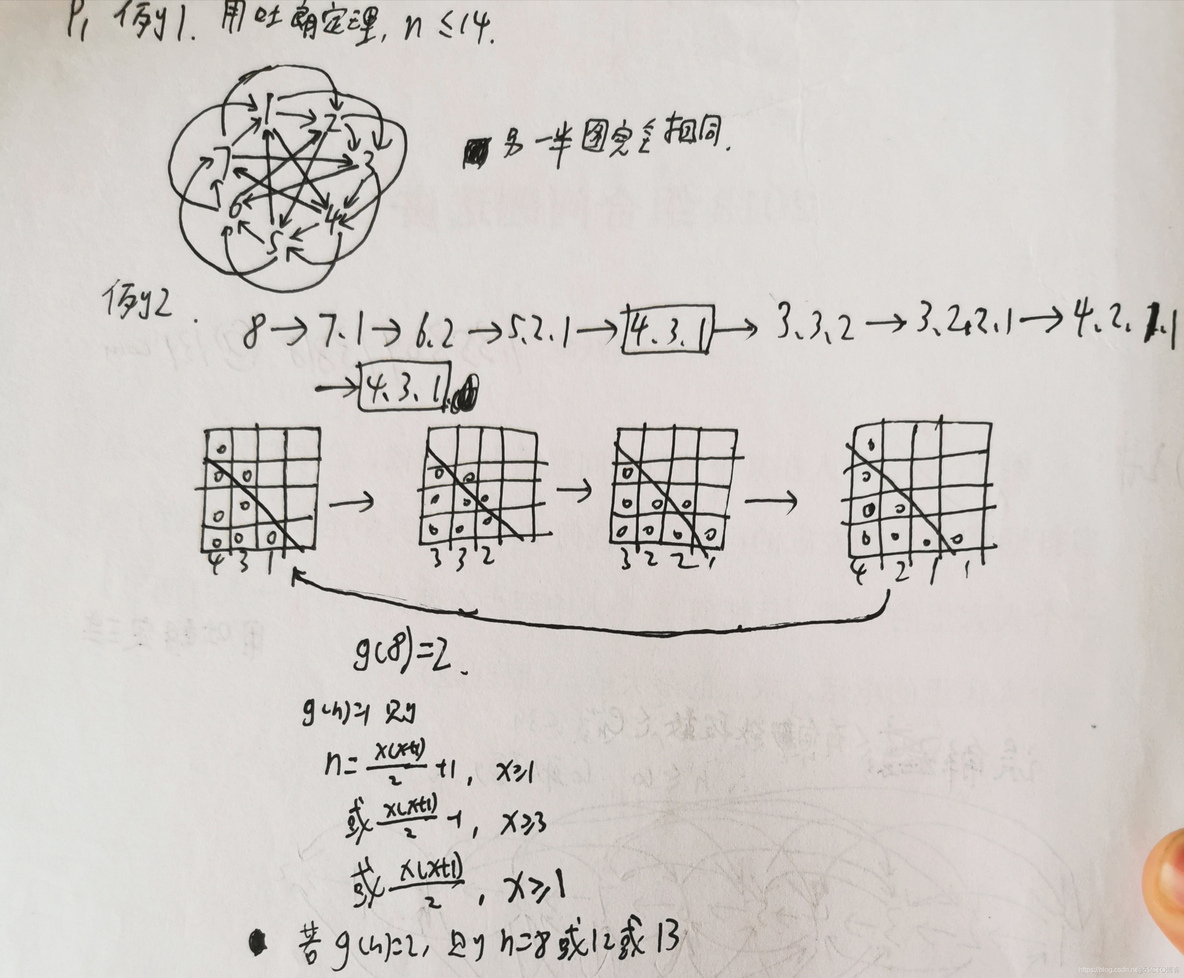 P₁ 例1. 用吐朗定理, n≤14.
1 2 3 4 5 6 7
另一半图完全相同.
例2.
8→7.1→6.2→5.2.1→4.3.1→3.3.2→3.2.2.1→4.2.1.1
→4.3.1
4 3 1 → 3 3 2 → 3 2 2 1 → 4 2 1 1
g(8)=2.
g(n)=1 则
n=x(x+1)/2+1, x≥1
或 x(x+1)/2-1, x≥3
或 x(x+1)/2, x≥1
若g(n)=2, 则n=8或12或13